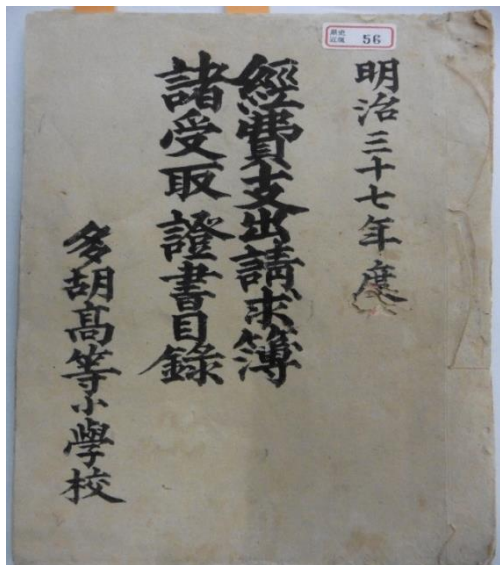 56
明治三十七年度
經費支出請求簿
諸受取證書目錄
多胡高等小學校